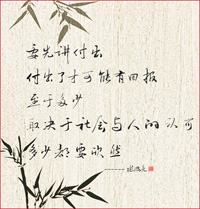 要先讲付出
付出了才可能有回报
至于多少
取决于社会与人的认可
多少都要欣然